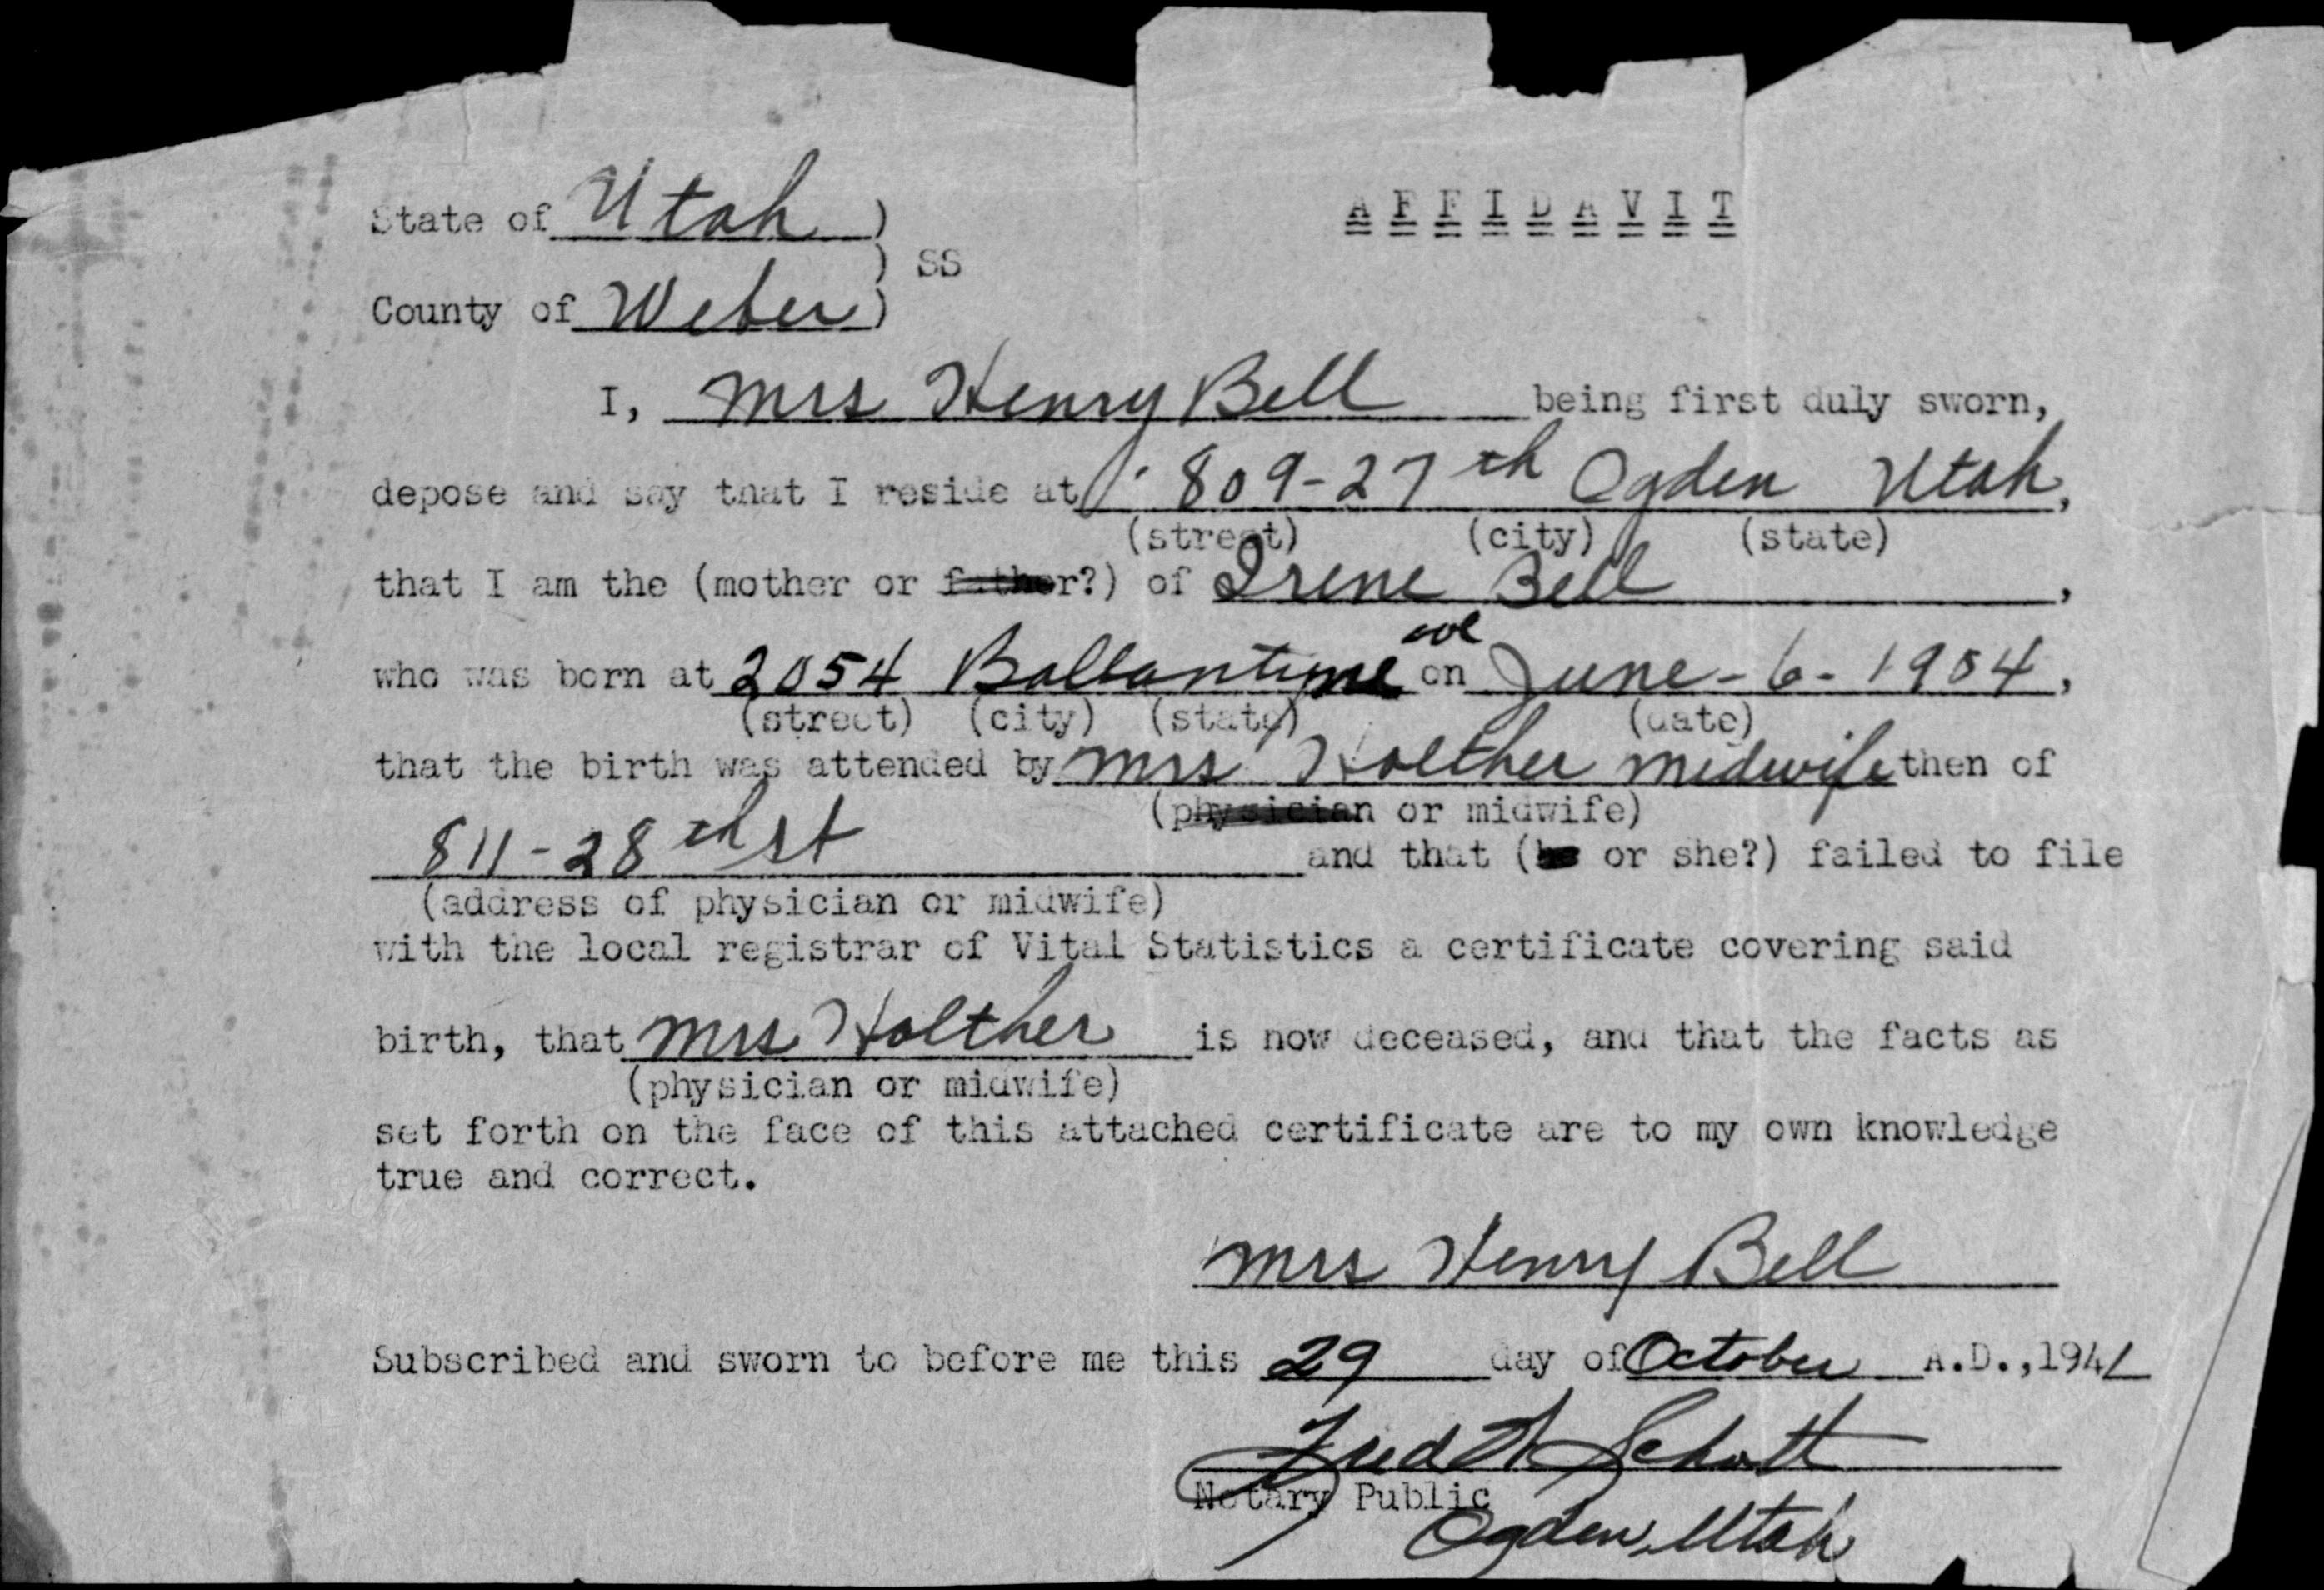 State of Utah )
AFFIDAVIT
) SS
County of Weber )
I, Mrs Henry Bell being first duly sworn,
depose and say that I reside at 809-27th Ogden Utah,
(street) (city) (state)
that I am the (mother or father?) of Irene Bell,
ave
who was born at 2054 Ballantine on June-6-1904,
(street) (city) (state) (date)
that the birth was attended by Mrs Holther midwife then of
(physician or midwife)
811-28th st and that (he or she?) failed to file
(address of physician or midwife)
with the local registrar of Vital Statistics a certificate covering said
birth, that Mrs Holther is now deceased, and that the facts as
(physician or midwife)
set forth on the face of this attached certificate are to my own knowledge
true and correct.
Mrs Henry Bell
Subscribed and sworn to before me this 29 day of October A.D.,1941
Fred Schott
Notary Public
Ogden, Utah